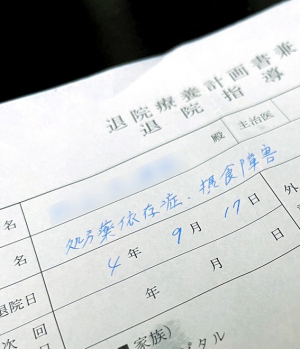 退院療養計画書兼
退院指導
殿 主治医
名
名 処方薬依存症、摂食障害
退院日 4年 9月 17日 外
次回 年 月 日
■家族)
タル